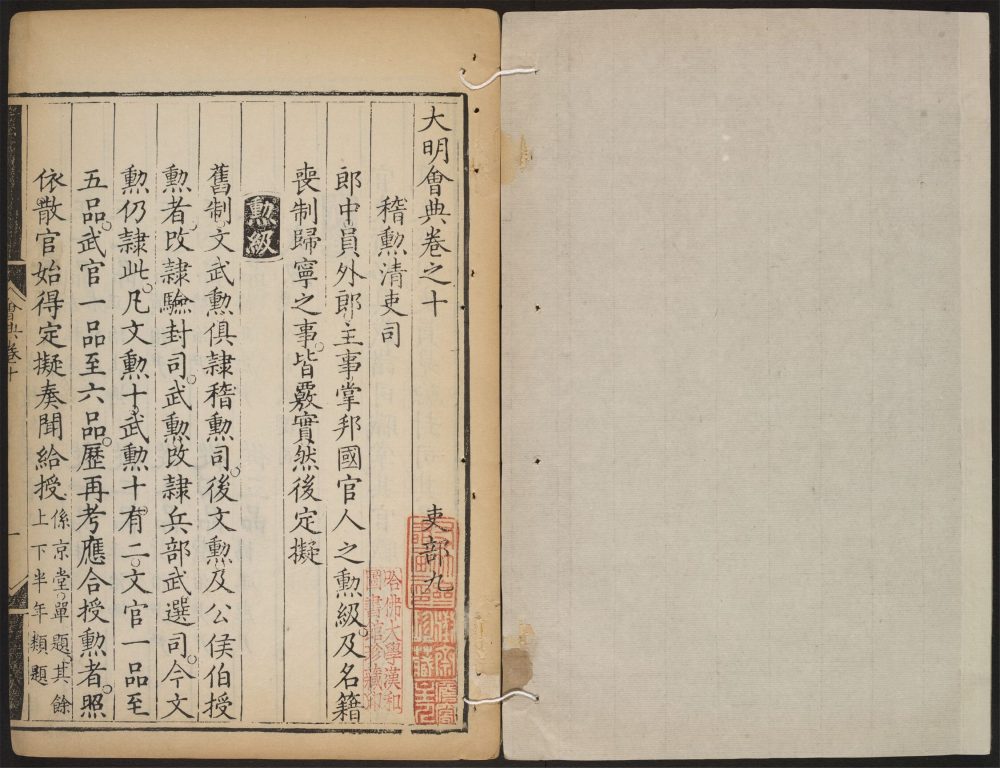 大明會典卷之十
吏部九
稽勲清吏司
郎中員外郎主事掌邦國官人之勲級及名籍
喪制歸寧之事。皆覈實然後定擬
勲級
舊制文武勲俱隸稽勲司。後文勲及公侯伯授
勲者。改隸驗封司。武勲改隸兵部武選司。今文
勲仍隸此。凡文勲十。武勲十有二。文官一品至
五品。武官一品至六品。歷再考應合授勲者。照
依散官始得定擬奏聞給授
係京堂。單題。其餘
上下半年類題
會典卷十
一
哈佛大學漢和
圖書館珍藏印